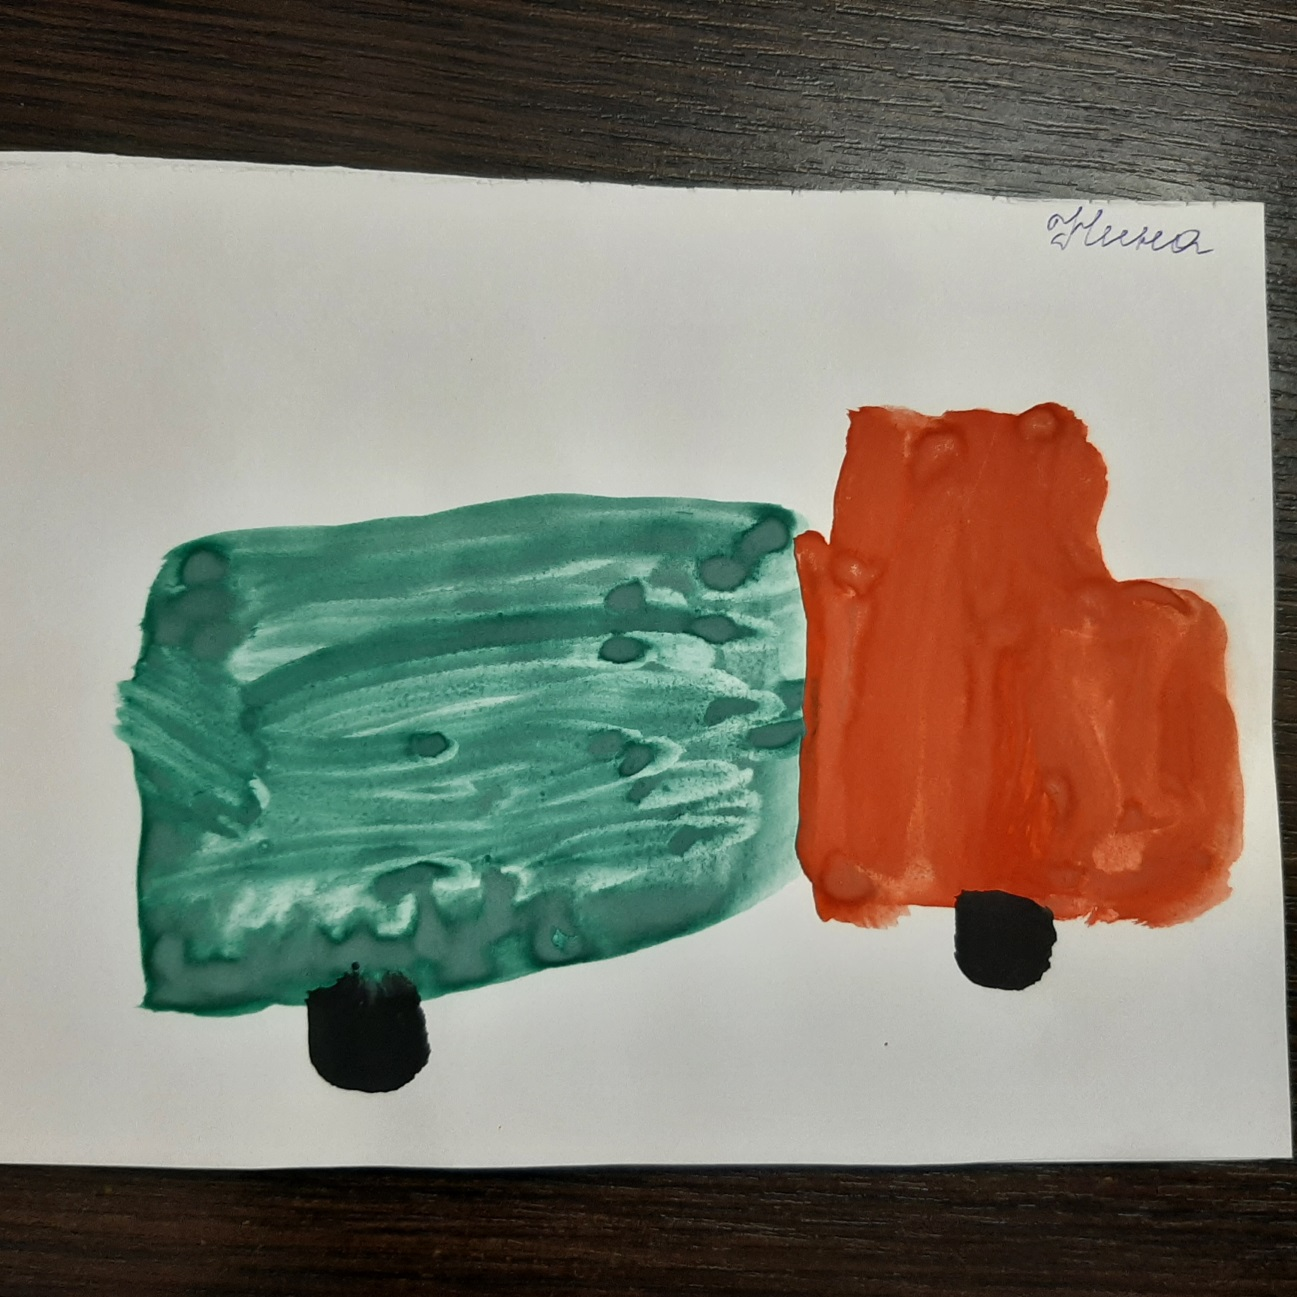 Нина